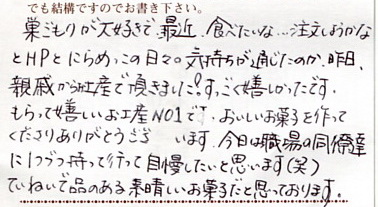 でも結構ですのでお書き下さい。
巣ごもりが大好きで、最近、食べたいな…注文しようかな
とHPとにらめっこの日々。気持ちが通じたのか、昨日、
親戚からお土産で頂きました!すっごく嬉しかったです。
もらって嬉しいお土産NO1です。おいしいお菓子を作って
くださりありがとうござ います。今日は職場の同僚達
に1つづつ持って行って自慢したいと思います(笑)
ていねいで品のある素晴しいお菓子だと思っております。